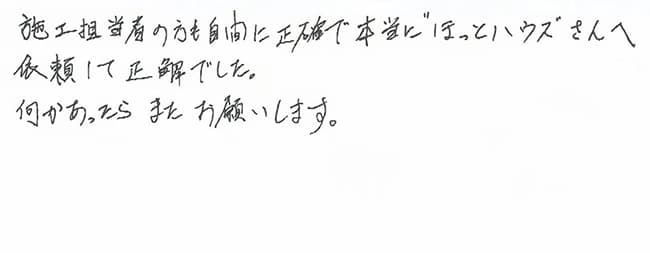 施工担当者の方も自間に正確で本当に"ほっとハウズさんへ
依頼して正解でした。
何かあったら また お願いします。